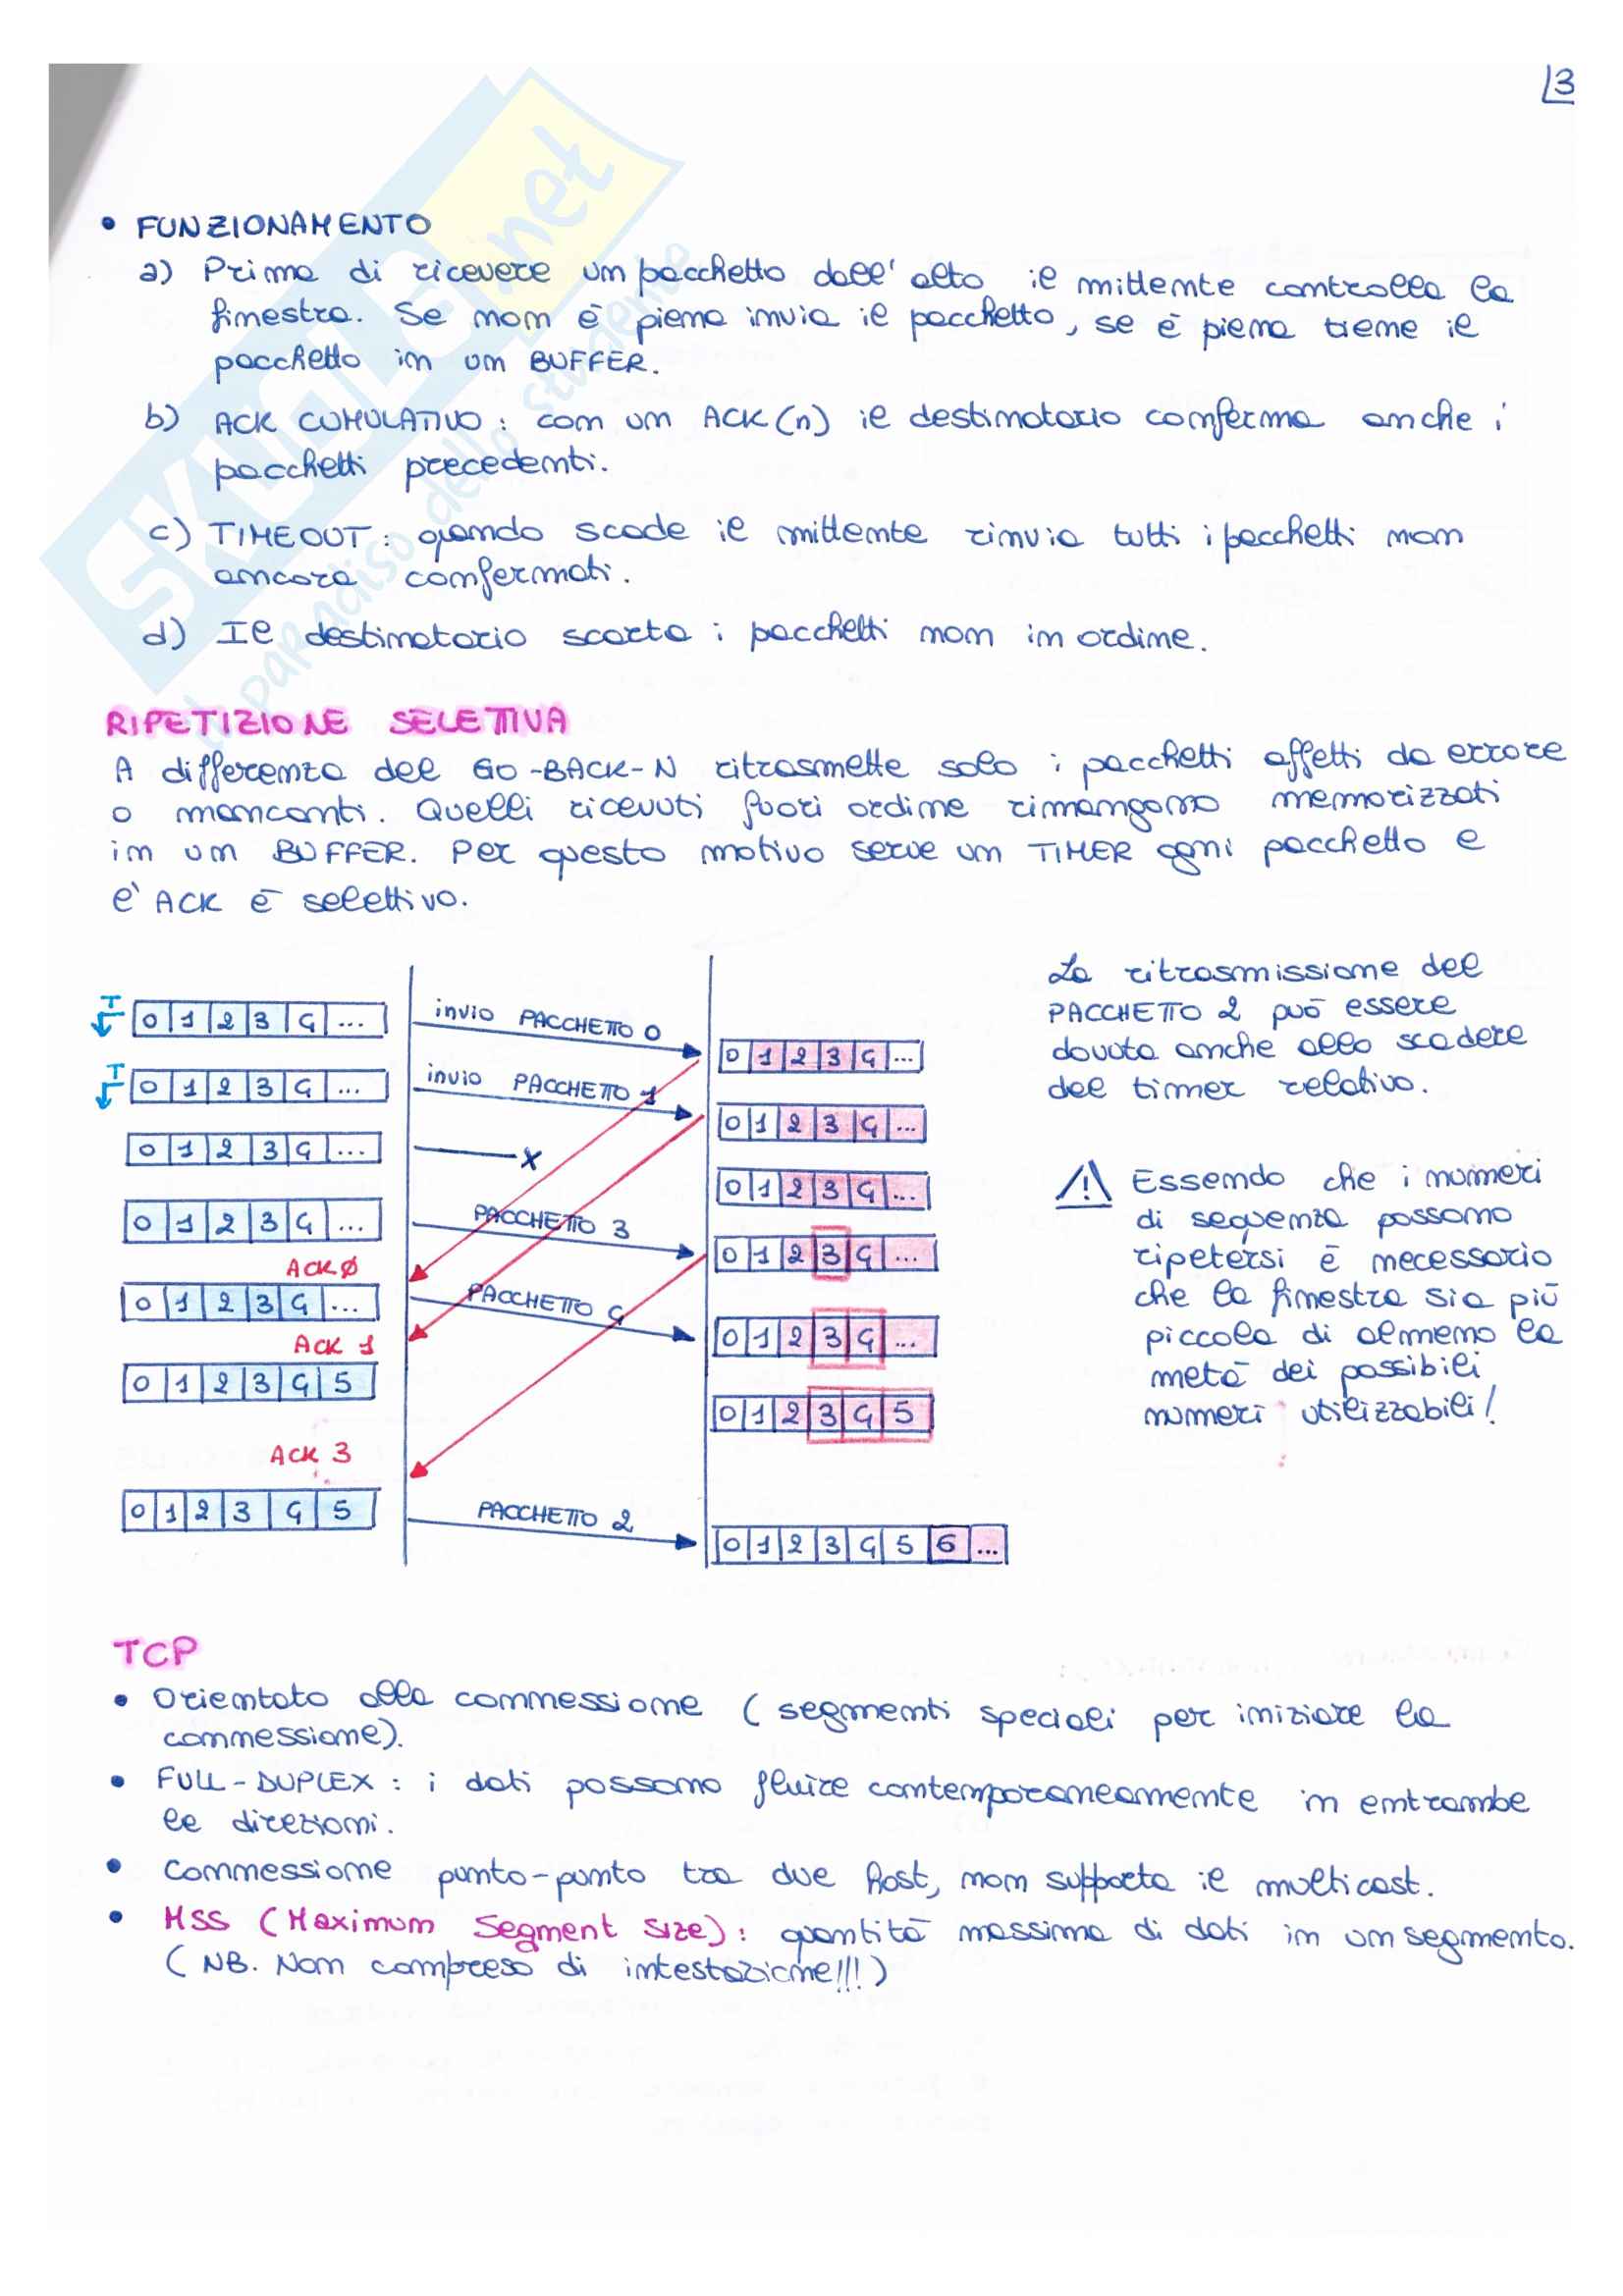 3
• FUNZIONAMENTO
a) Prima di ricevere un pacchetto dall'alto il mittente controlla la
finestra. Se non è piena invia il pacchetto, se è piena tiene il
pacchetto in un BUFFER.
b) ACK CUMULATIVO: con un ACK(n) il destinatario conferma anche i
pacchetti precedenti.
c) TIMEOUT: quando scade il mittente rinvia tutti i pacchetti non
ancora confermati.
d) Il destinatario scarta i pacchetti non in ordine.
RIPETIZIONE SELETTIVA
A differenza del GO-BACK-N ritrasmette solo i pacchetti affetti da errore
o mancanti. Quelli ricevuti fuori ordine rimangono memorizzati
in un BUFFER. Per questo motivo serve un TIMER ogni pacchetto e
l'ACK è selettivo.
T 0 1 2 3 4 ...
invio PACCHETTO 0
0 1 2 3 4 ...
T 0 1 2 3 4 ...
invio PACCHETTO 1
0 1 2 3 4 ...
0 1 2 3 4 ...
X
0 1 2 3 4 ...
0 1 2 3 4 ...
PACCHETTO 3
0 1 2 3 4 ...
ACK 0
0 1 2 3 4 ...
PACCHETTO 4
0 1 2 3 4 ...
ACK 1
0 1 2 3 4 5
0 1 2 3 4 5
ACK 3
0 1 2 3 4 5
PACCHETTO 2
0 1 2 3 4 5 6 ...
La ritrasmissione del
PACCHETTO 2 può essere
dovuta anche allo scadere
del timer relativo.
⚠ Essendo che i numeri
di sequenza possono
ripetersi è necessario
che la finestra sia più
piccola di almeno la
metà dei possibili
numeri utilizzabili!
TCP
• Orientato alla connessione (segmenti speciali per iniziare la
connessione).
• FULL-DUPLEX: i dati possono fluire contemporaneamente in entrambe
le direzioni.
• Connessione punto-punto tra due host, non supporta il multicast.
• MSS (Maximum Segment Size): quantità massima di dati in un segmento.
(NB. Non compreso di intestazione!!!)
SKUOLA.net
il paradiso dello studente